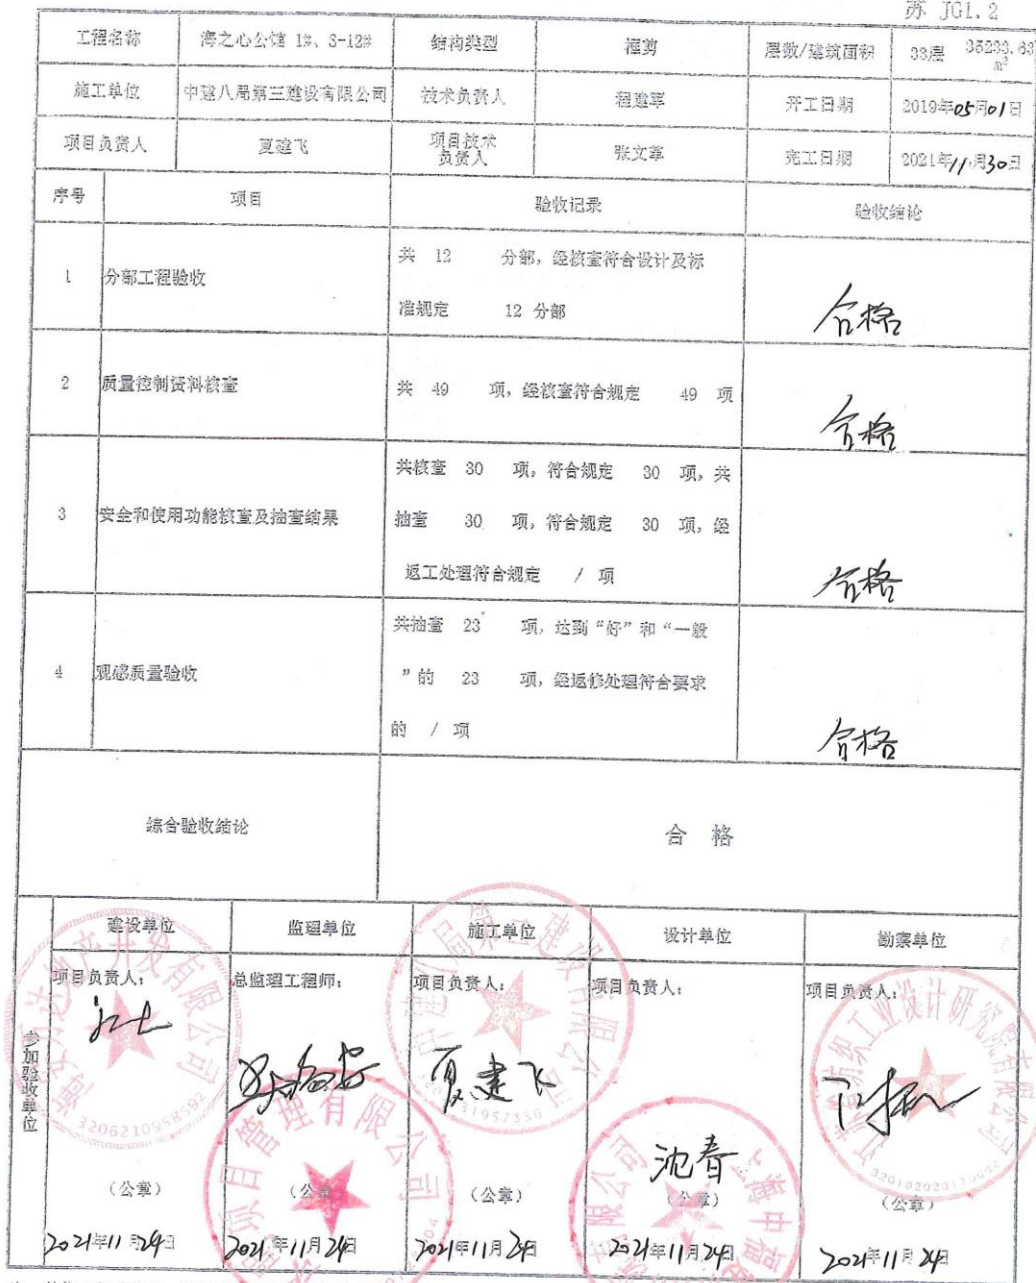 苏 JG1.2
工程名称 海之心公馆 1#、S-12# 结构类型 框剪 层数/建筑面积 33层 35233.63 m²
施工单位 中建八局第三建设有限公司 技术负责人 程建军 开工日期 2019年05月01日
项目负责人 夏建飞 项目技术负责人 张文革 完工日期 2021年11月30日
序号 项目 验收记录 验收结论
1 分部工程验收 共 12 分部，经核查符合设计及标
准规定 12 分部 合格
2 质量控制资料核查 共 49 项，经核查符合规定 49 项 合格
3 安全和使用功能核查及抽查结果 共核查 30 项，符合规定 30 项，共
抽查 30 项，符合规定 30 项，经
返工处理符合规定 / 项 合格
4 观感质量验收 共抽查 23 项，达到“好”和“一般
”的 23 项，经返修处理符合要求
的 / 项 合格
综合验收结论 合 格
参加验收单位
建设单位 监理单位 施工单位 设计单位 勘察单位
项目负责人： 总监理工程师： 项目负责人： 项目负责人： 项目负责人：
夏建飞
沈春
（公章） （公章） （公章） （公章） （公章）
2021年11月24日 2021年11月24日 2021年11月24日 2021年11月24日 2021年11月24日
3206210958592